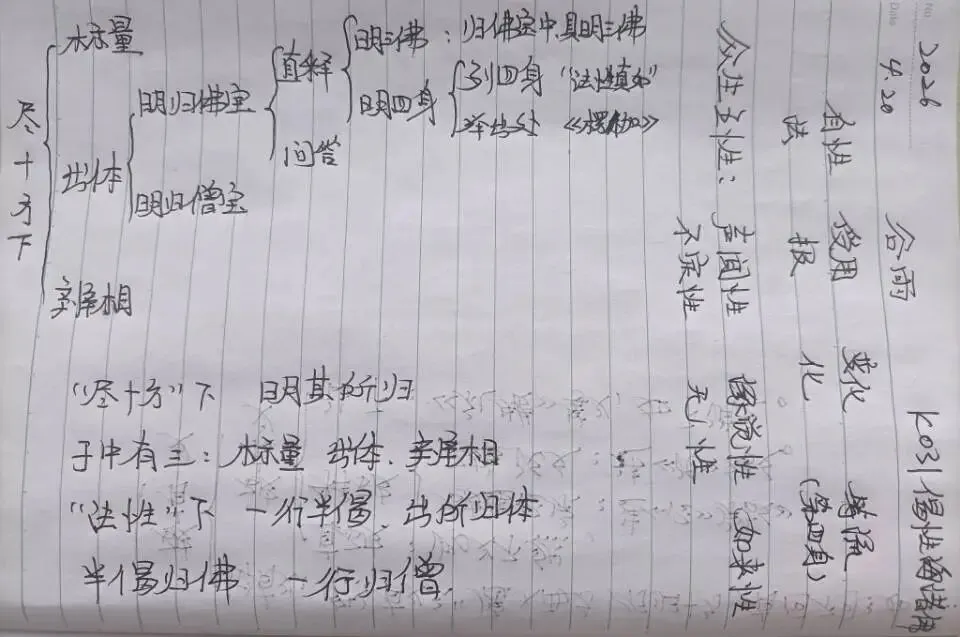 2026
4.20 谷雨 K031偈性海诸佛
自性 受用 变化 等流
法 报 化 (第四身)
众生五性：声闻性 缘觉性 如来性
不定性 无性
尽十方下
标量
出体
明归佛宝
明归僧宝
直释
问答
明三佛：归佛宝中，具明三佛
明四身
列四身 "法性真如"
举出处 《楞伽》
"尽十方"下 明其所归
于中有三：标量 出体
"法性"下 一行半偈，出所归体
半偈归佛 一行归僧.